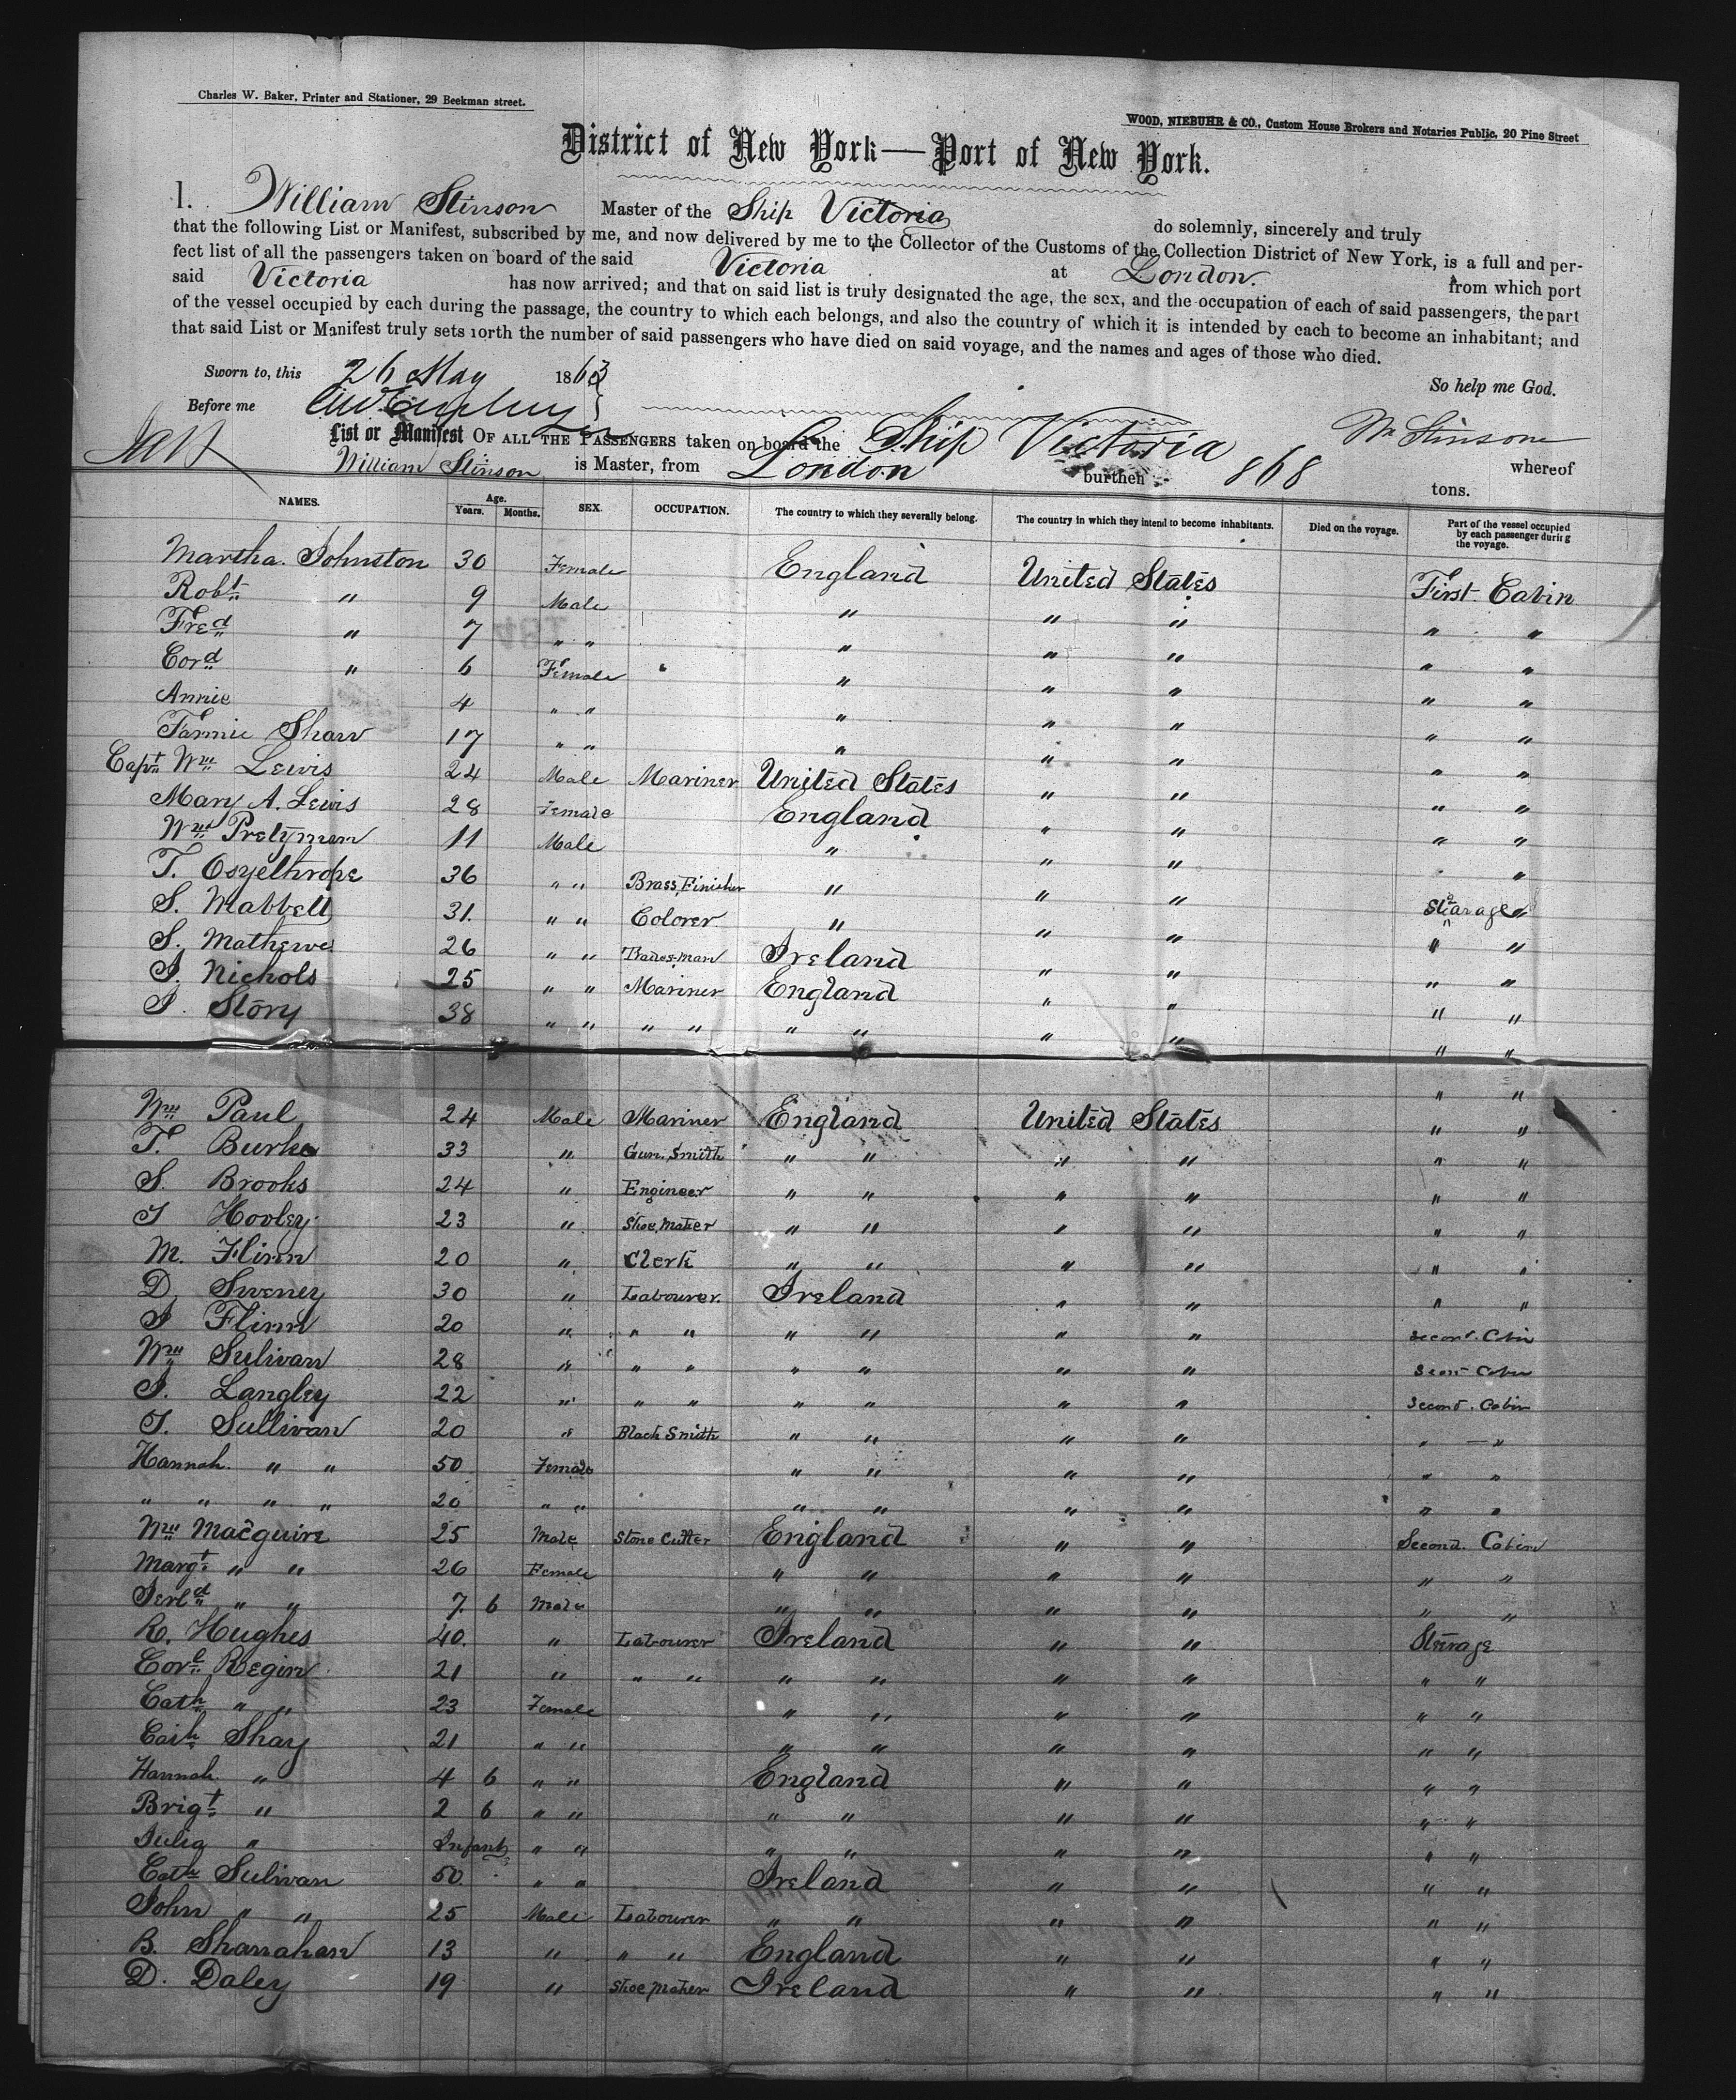 Charles W. Baker, Printer and Stationer, 29 Beekman street.
WOOD, NIEBUHR & CO., Custom House Brokers and Notaries Public, 20 Pine Street
District of New York—Port of New York.
I. William Stinson Master of the Ship Victoria do solemnly, sincerely and truly
that the following List or Manifest, subscribed by me, and now delivered by me to the Collector of the Customs of the Collection District of New York, is a full and per-
fect list of all the passengers taken on board of the said Victoria at London. from which port
said Victoria has now arrived; and that on said list is truly designated the age, the sex, and the occupation of each of said passengers, the part
of the vessel occupied by each during the passage, the country to which each belongs, and also the country of which it is intended by each to become an inhabitant; and
that said List or Manifest truly sets forth the number of said passengers who have died on said voyage, and the names and ages of those who died.
Sworn to, this 26 May 1863 So help me God.
Before me Wm Stinson
List or Manifest OF ALL THE PASSENGERS taken on board the Ship Victoria whereof
William Stinson is Master, from London burthen 868 tons.
NAMES. Age. Years. Months. SEX. OCCUPATION. The country to which they severally belong. The country in which they intend to become inhabitants. Died on the voyage. Part of the vessel occupied by each passenger during the voyage.
Martha. Johnston 30 Female England United States First Cabin
Robt " 9 Male " " " " "
Fred " 7 " " " " " " "
Cord " 6 Female " " " " "
Annie 4 " " " " " " "
Fannie Shaw 17 " " " " " " "
Capt Wm Lewis 24 Male Mariner United States " " " "
Mary A. Lewis 28 Female England " " " "
Wm Pretyman 11 Male " " " "
T. 36 " " Brass Finisher " " " Stearage "
S. Mabbett 31. " " Colorer " " " " "
S. Mathews 26 " " Trades-man Ireland " " " "
J. Nichols 25 " " Mariner England " " " "
J. Story 38 " " " " " " " " " "
Wm Paul 24 Male Mariner England United States " "
T. Burke 33 " Gun. Smith " " " " " "
S. Brooks 24 " Engineer " " " " " "
J Hooley 23 " Shoe Maker " " " " " "
M. Flinn 20 " Clerk " " " " " "
D. Sweney 30 " Labourer. Ireland " " " "
J Flinn 20 " " " " " " " Second. Cabin
Wm Sulivan 28 " " " " " " " Second Cabin
J. Langley 22 " " " " " " " Second. Cabin
J. Sullivan 20 " Black Smith " " " " " "
Hannah. " " 50 Female " " " " " "
" " " " 20 " " " " " " " "
Wm Macguire 25 Male Stone Cutter England " " Second. Cabin
Margt " " 26 Female " " " " " "
" " 7. 6 Male " " " " " "
R. Hughes 40. " Labourer Ireland " " Steerage
Corl Regin 21 " " " " " " " " "
Cath " " 23 Female " " " " " "
Cath Shay 21 " " " " " " " "
Hannah " 4 6 " " England " " " "
Brigt " 2 6 " " " " " " " "
Julia " Infant " " " " " " " "
Cath Sulivan 50. " " Ireland " " " "
John " " 25 Male Labourer " " " " " "
B. Shanahan 13 " " " England " " " "
D. Daley 19 " Shoe Maker Ireland " " " "